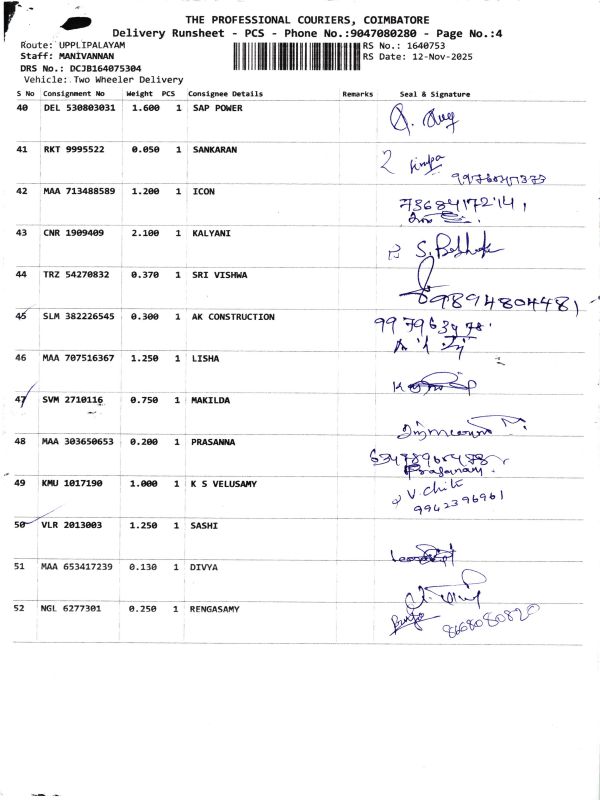 THE PROFESSIONAL COURIERS, COIMBATORE
Delivery Runsheet - PCS - Phone No.:9047080280 - Page No.:4
Route: UPPLIPALAYAM RS No.: 1640753
Staff: MANIVANNAN RS Date: 12-Nov-2025
DRS No.: DCJB164075304
Vehicle: Two Wheeler Delivery
S No Consignment No Weight PCS Consignee Details Remarks Seal & Signature
40 DEL 530803031 1.600 1 SAP POWER
41 RKT 9995522 0.050 1 SANKARAN
42 MAA 713488589 1.200 1 ICON
7368417214
43 CNR 1909409 2.100 1 KALYANI
44 TRZ 54270832 0.370 1 SRI VISHWA
9894804481
45 SLM 382226545 0.300 1 AK CONSTRUCTION
46 MAA 707516367 1.250 1 LISHA
47 SVM 2710116 0.750 1 MAKILDA
48 MAA 303650653 0.200 1 PRASANNA
Prasanna
49 KMU 1017190 1.000 1 K S VELUSAMY
V. Chitr
9942396961
50 VLR 2013003 1.250 1 SASHI
51 MAA 653417239 0.130 1 DIVYA
52 NGL 6277301 0.250 1 RENGASAMY
8668080820